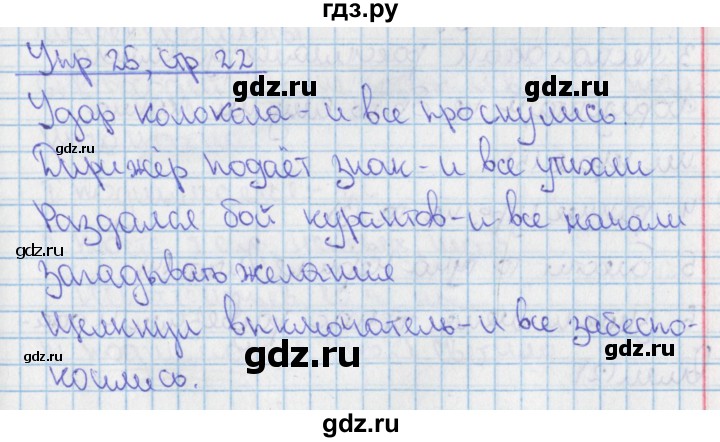 гдз.ру
Упр 25, стр 22
gdz.ru
gdz.ru
Удар колокола - и все проснулись.
gdz.ru
Дирижёр подаёт знак - и все утихли
gdz.ru
gdz.ru
Раздался бой курантов - и все начали
gdz.ru
загадывать желания
Щелкнул выключатель - и все забеспо-
gdz.ru
gdz.ru
gdz.ru
коились.
gdz.ru